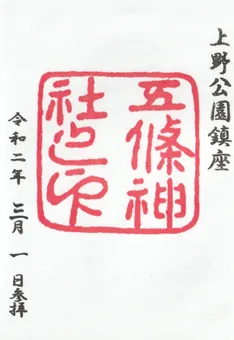 上野公園鎮座
五條神
社之印
令和二年 三月 一日参拝